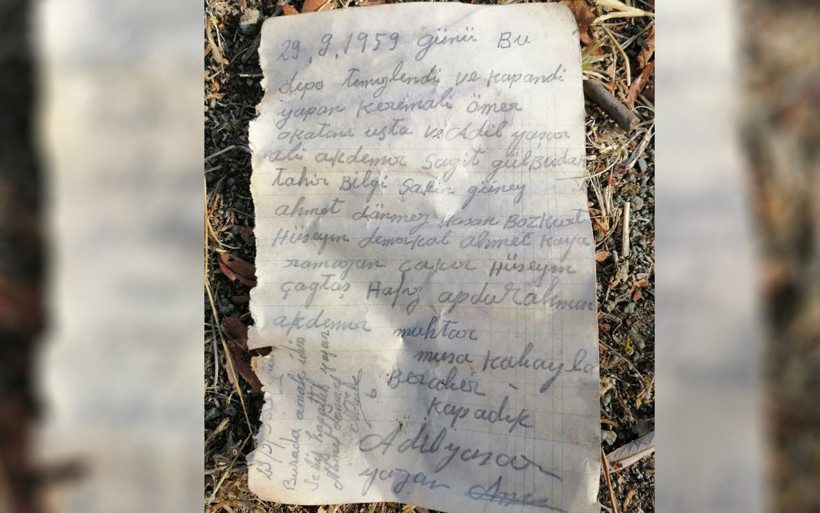 29.9.1959 günü Bu
depo temizlendi ve kapandi
yapan Keremali ömer
akatan usta ve Adil yasar
ali akdemor Sayit gülBudak
tahir Bilgi Şakir güney
ahmet dönmez Hasan Bozkurt
Hüseyin demorkal ahmet Kaya
ramazan çakır Hüseyin
çagtaş Hafız apdurahman
akdemor muhtar
musa Kahay
Beraber
Kapadık
Adilyasar
yazan
Burada